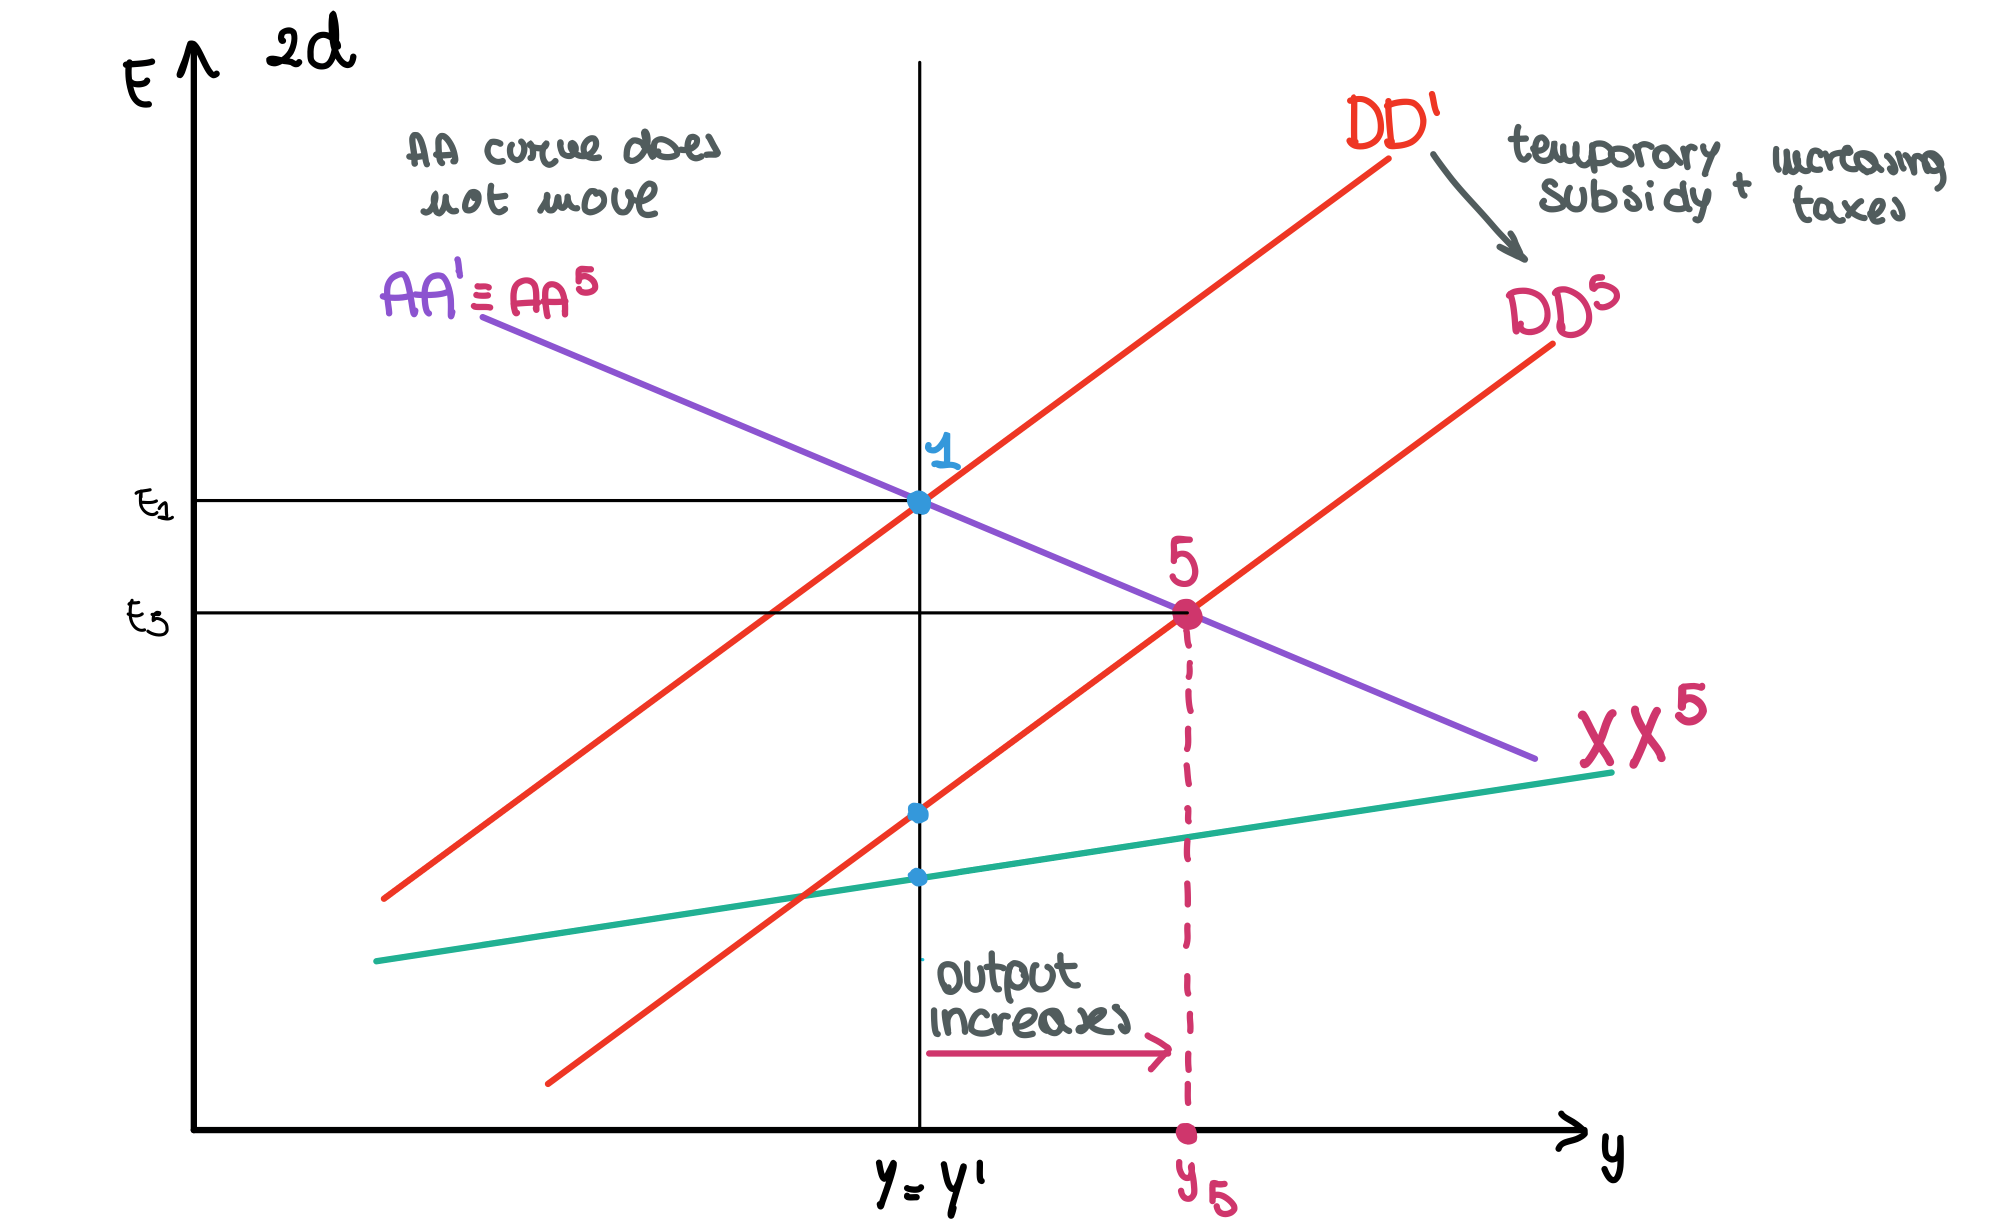 2d
E
AA curve does
not move
AA' ≡ AA⁵
DD'
temporary
subsidy + increasing
taxes
DD⁵
1
E₁
5
E₅
XX⁵
output
increases
y
y = y'
y₅